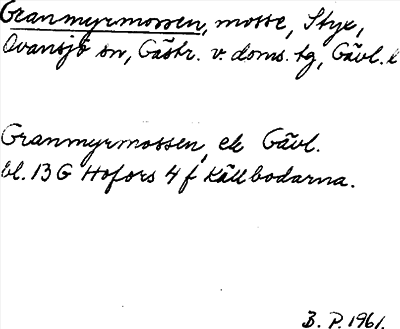 Granmyrmossen, mosse, Styx,
Ovansjö sn, Gästr. v. doms. tg, Gävl. l
Granmyrmossen, ek Gävl.
bl. 13 G Hofors 4 f Källbodarna.
B. P. 1961.